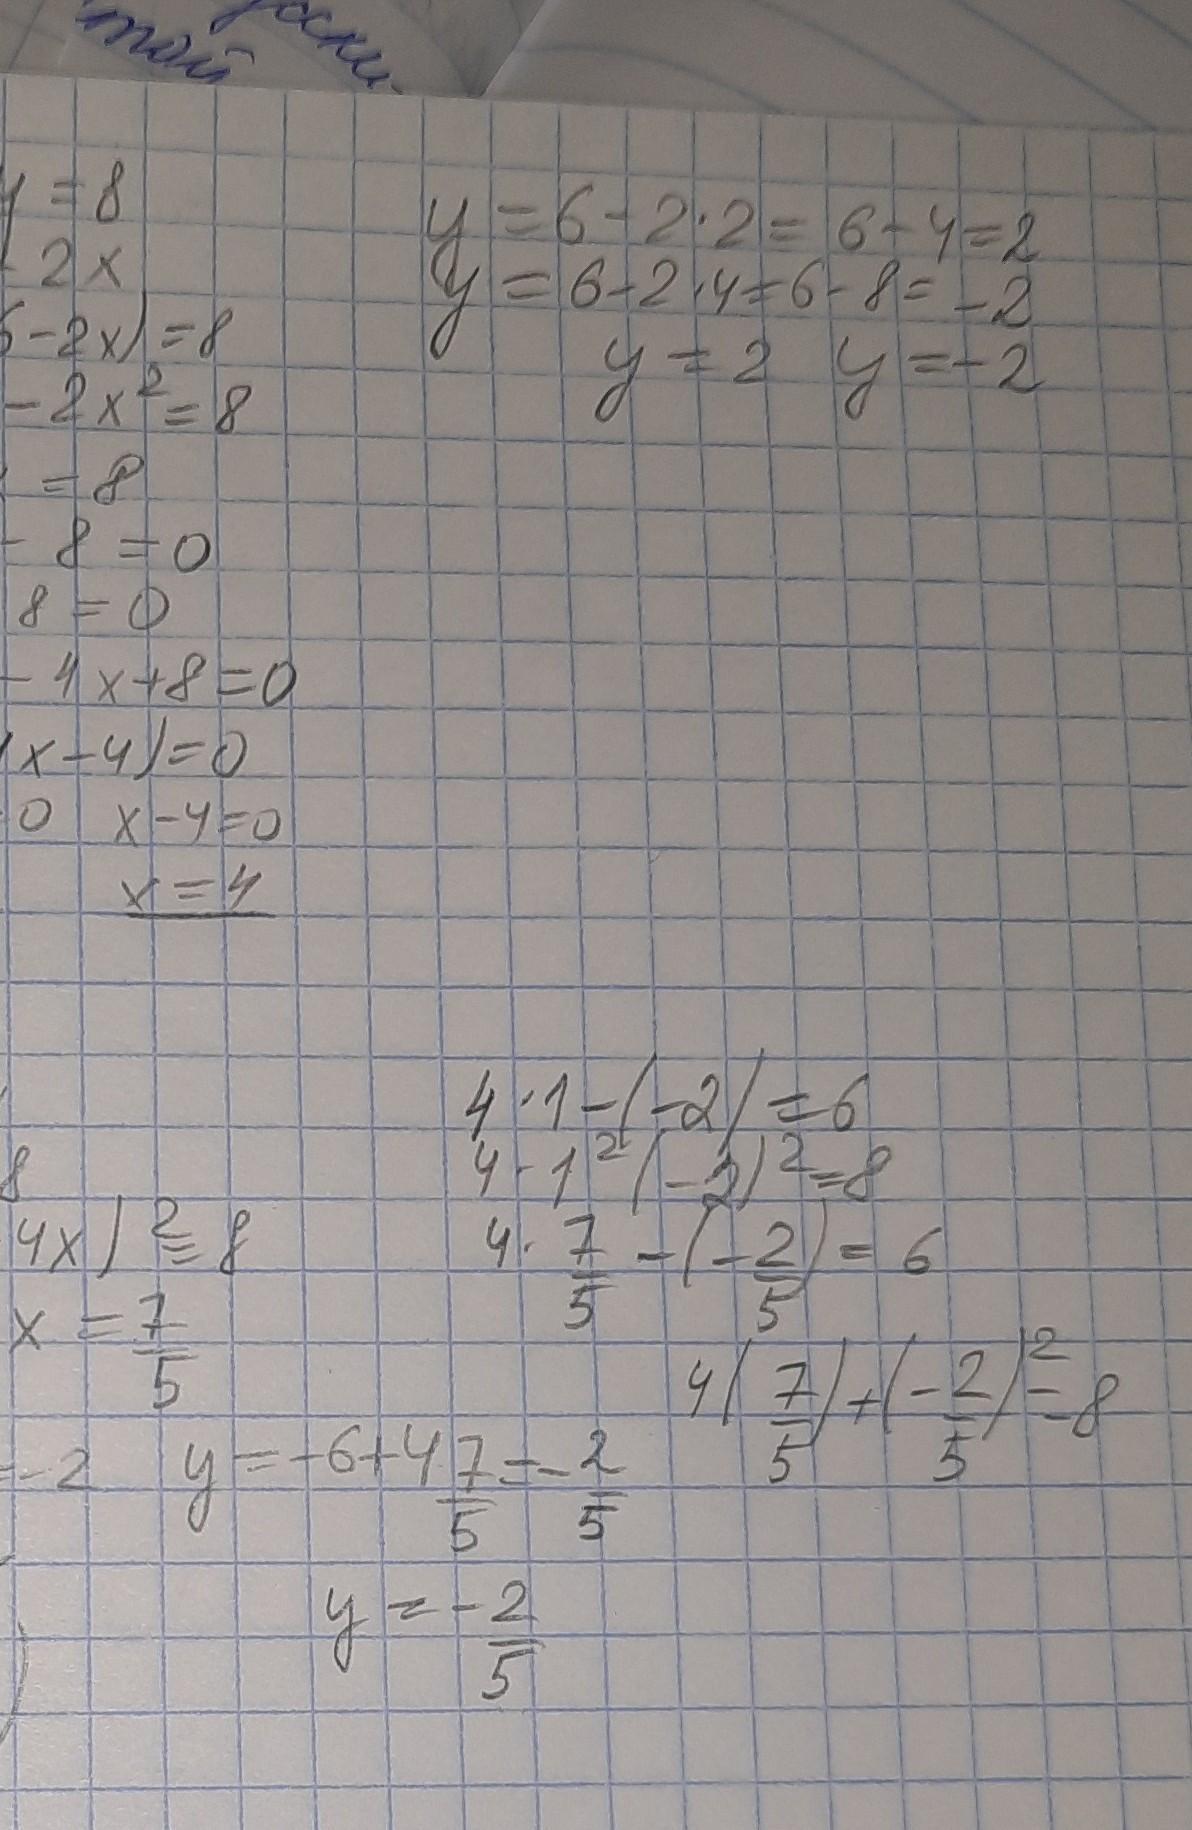 той
y = 8
- 2x
6 - 2x) = 8
- 2x² = 8
= 8
- 8 = 0
8 = 0
- 4x + 8 = 0
(x - 4) = 0
0 x - 4 = 0
x = 4
y = 6 - 2 · 2 = 6 - 4 = 2
y = 6 - 2 · 4 = 6 - 8 = -2
y = 2 y = -2
8
4x)² = 8
x = 7/5
= -2 y = -6 + 4 7/5 = -2/5
y = -2/5
4 · 1 - (-2) = 6
4 · 1² (-2)² = 8
4 · 7/5 - (-2/5) = 6
4(7/5) + (-2/5)² = 8